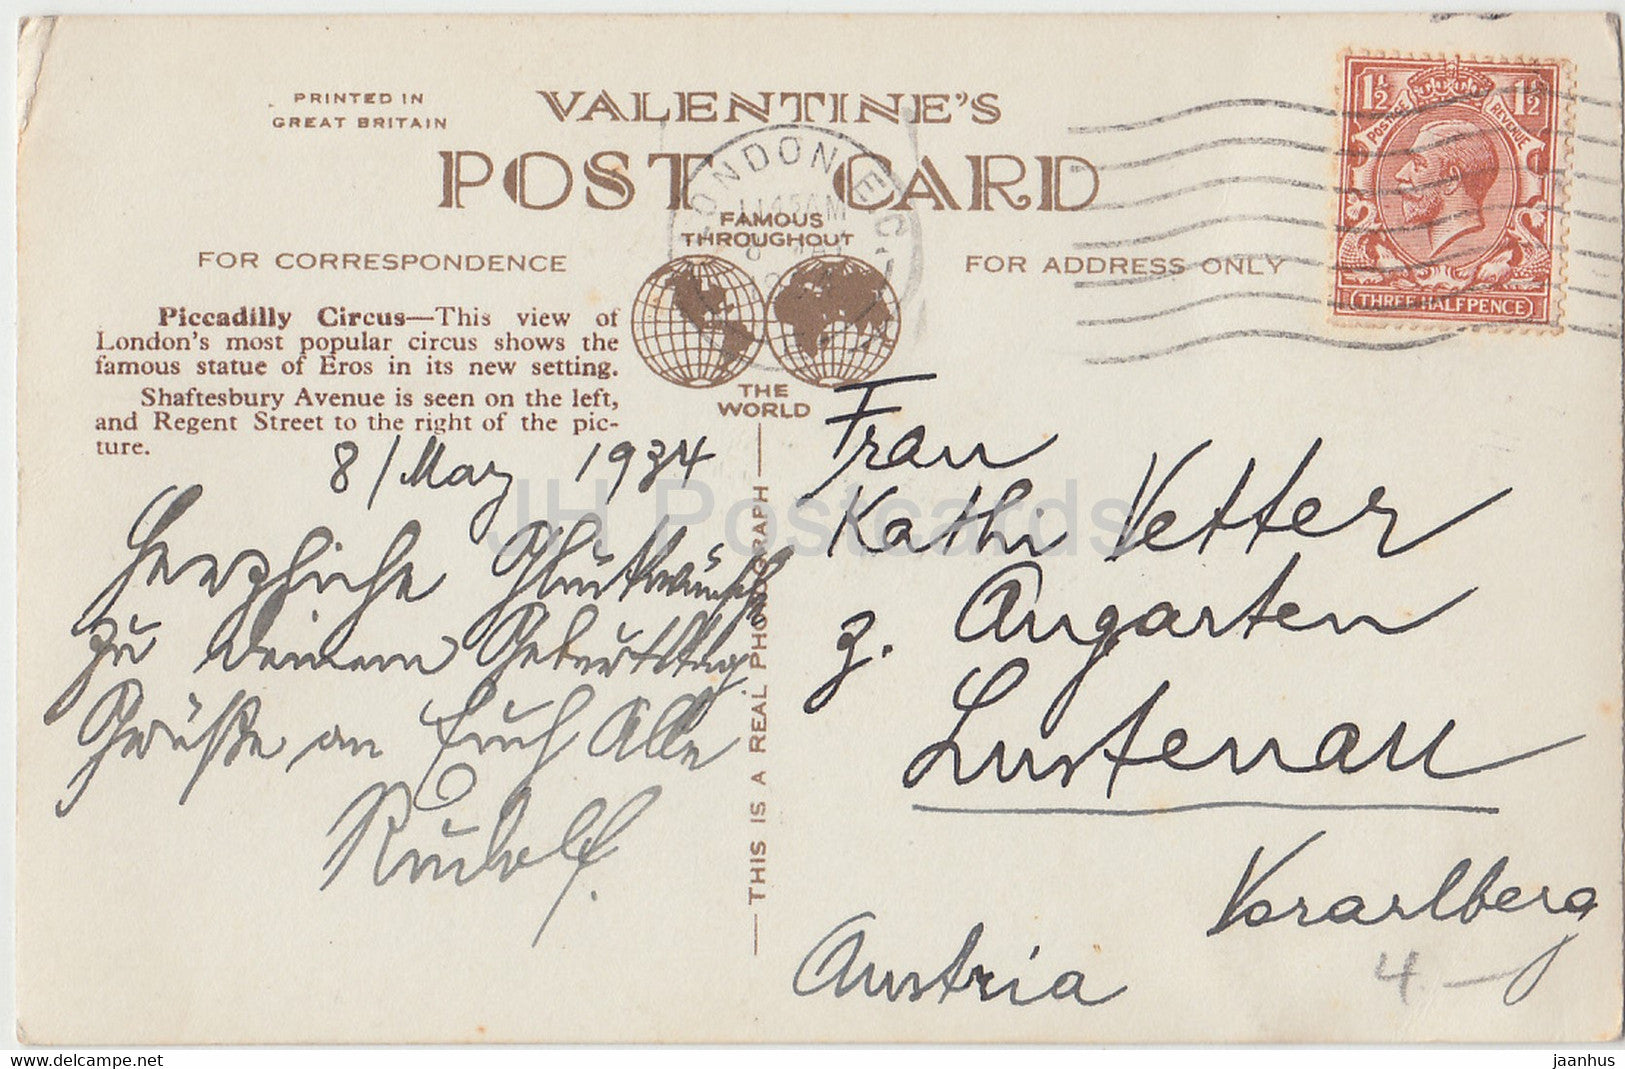 PRINTED IN
GREAT BRITAIN
VALENTINE'S
POST CARD
FAMOUS
THROUGHOUT
THE
WORLD
LONDON E.C.
11 45 AM
FOR CORRESPONDENCE
FOR ADDRESS ONLY
1½ 1½
POSTAGE REVENUE
THREE HALFPENCE
Piccadilly Circus—This view of
London's most popular circus shows the
famous statue of Eros in its new setting.
Shaftesbury Avenue is seen on the left,
and Regent Street to the right of the pic-
ture.
8/May 1934
Herzliche Glückwünsche
zu Deinem Geburtstag.
Grüße an Euch Alle
Rudolf.
THIS IS A REAL PHOTOGRAPH
Frau
Kathi Vetter
z. Augarten
Lustenau
Vorarlberg
Austria
4.—
JH Postcards
www.delcampe.net
jaanhus